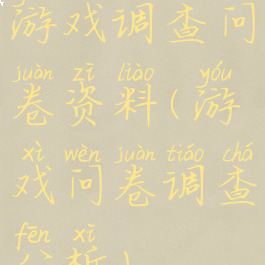 游戏调查问
juàn zī liào yóu
卷资料(游
xì wèn juàn tiáo chá
戏问卷调查
fēn xī
分析)